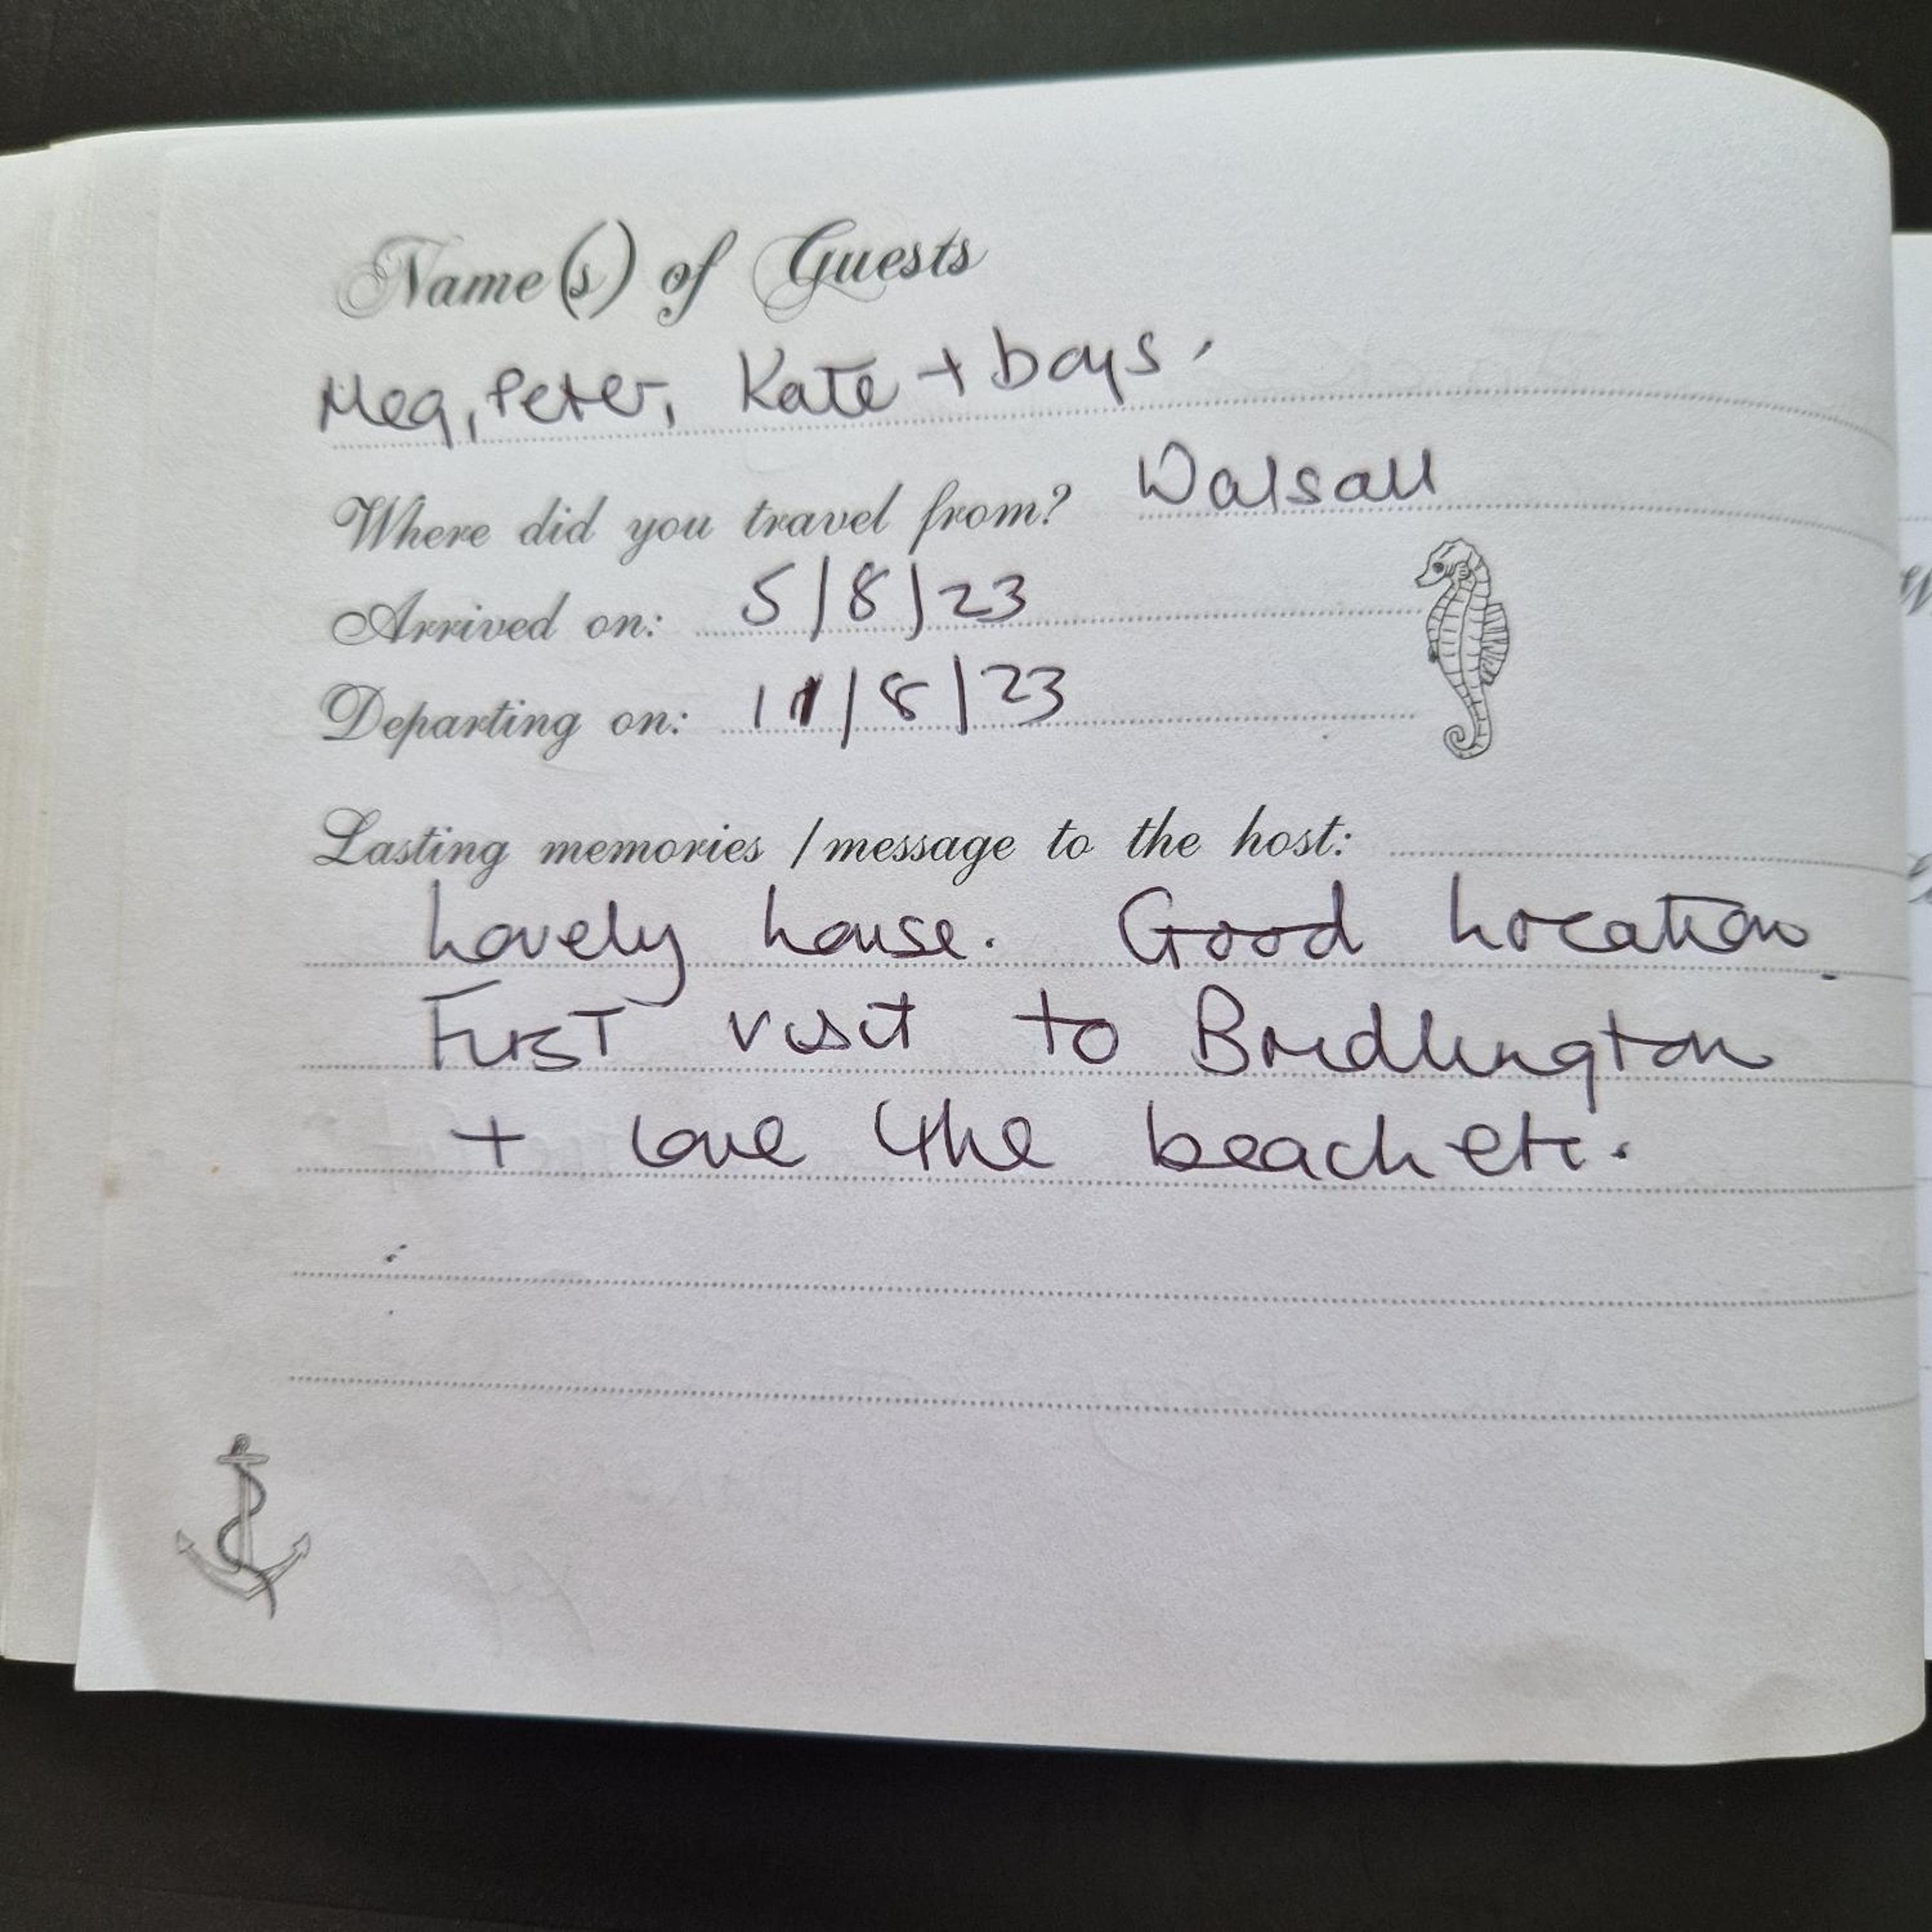 Name(s) of Guests
Meg, Peter, Kate + boys.
Where did you travel from? Walsall
Arrived on: 5/8/23
Departing on: 11/8/23
Lasting memories / message to the host:
Lovely house. Good Location.
First visit to Bridlington
+ love the beach etc.